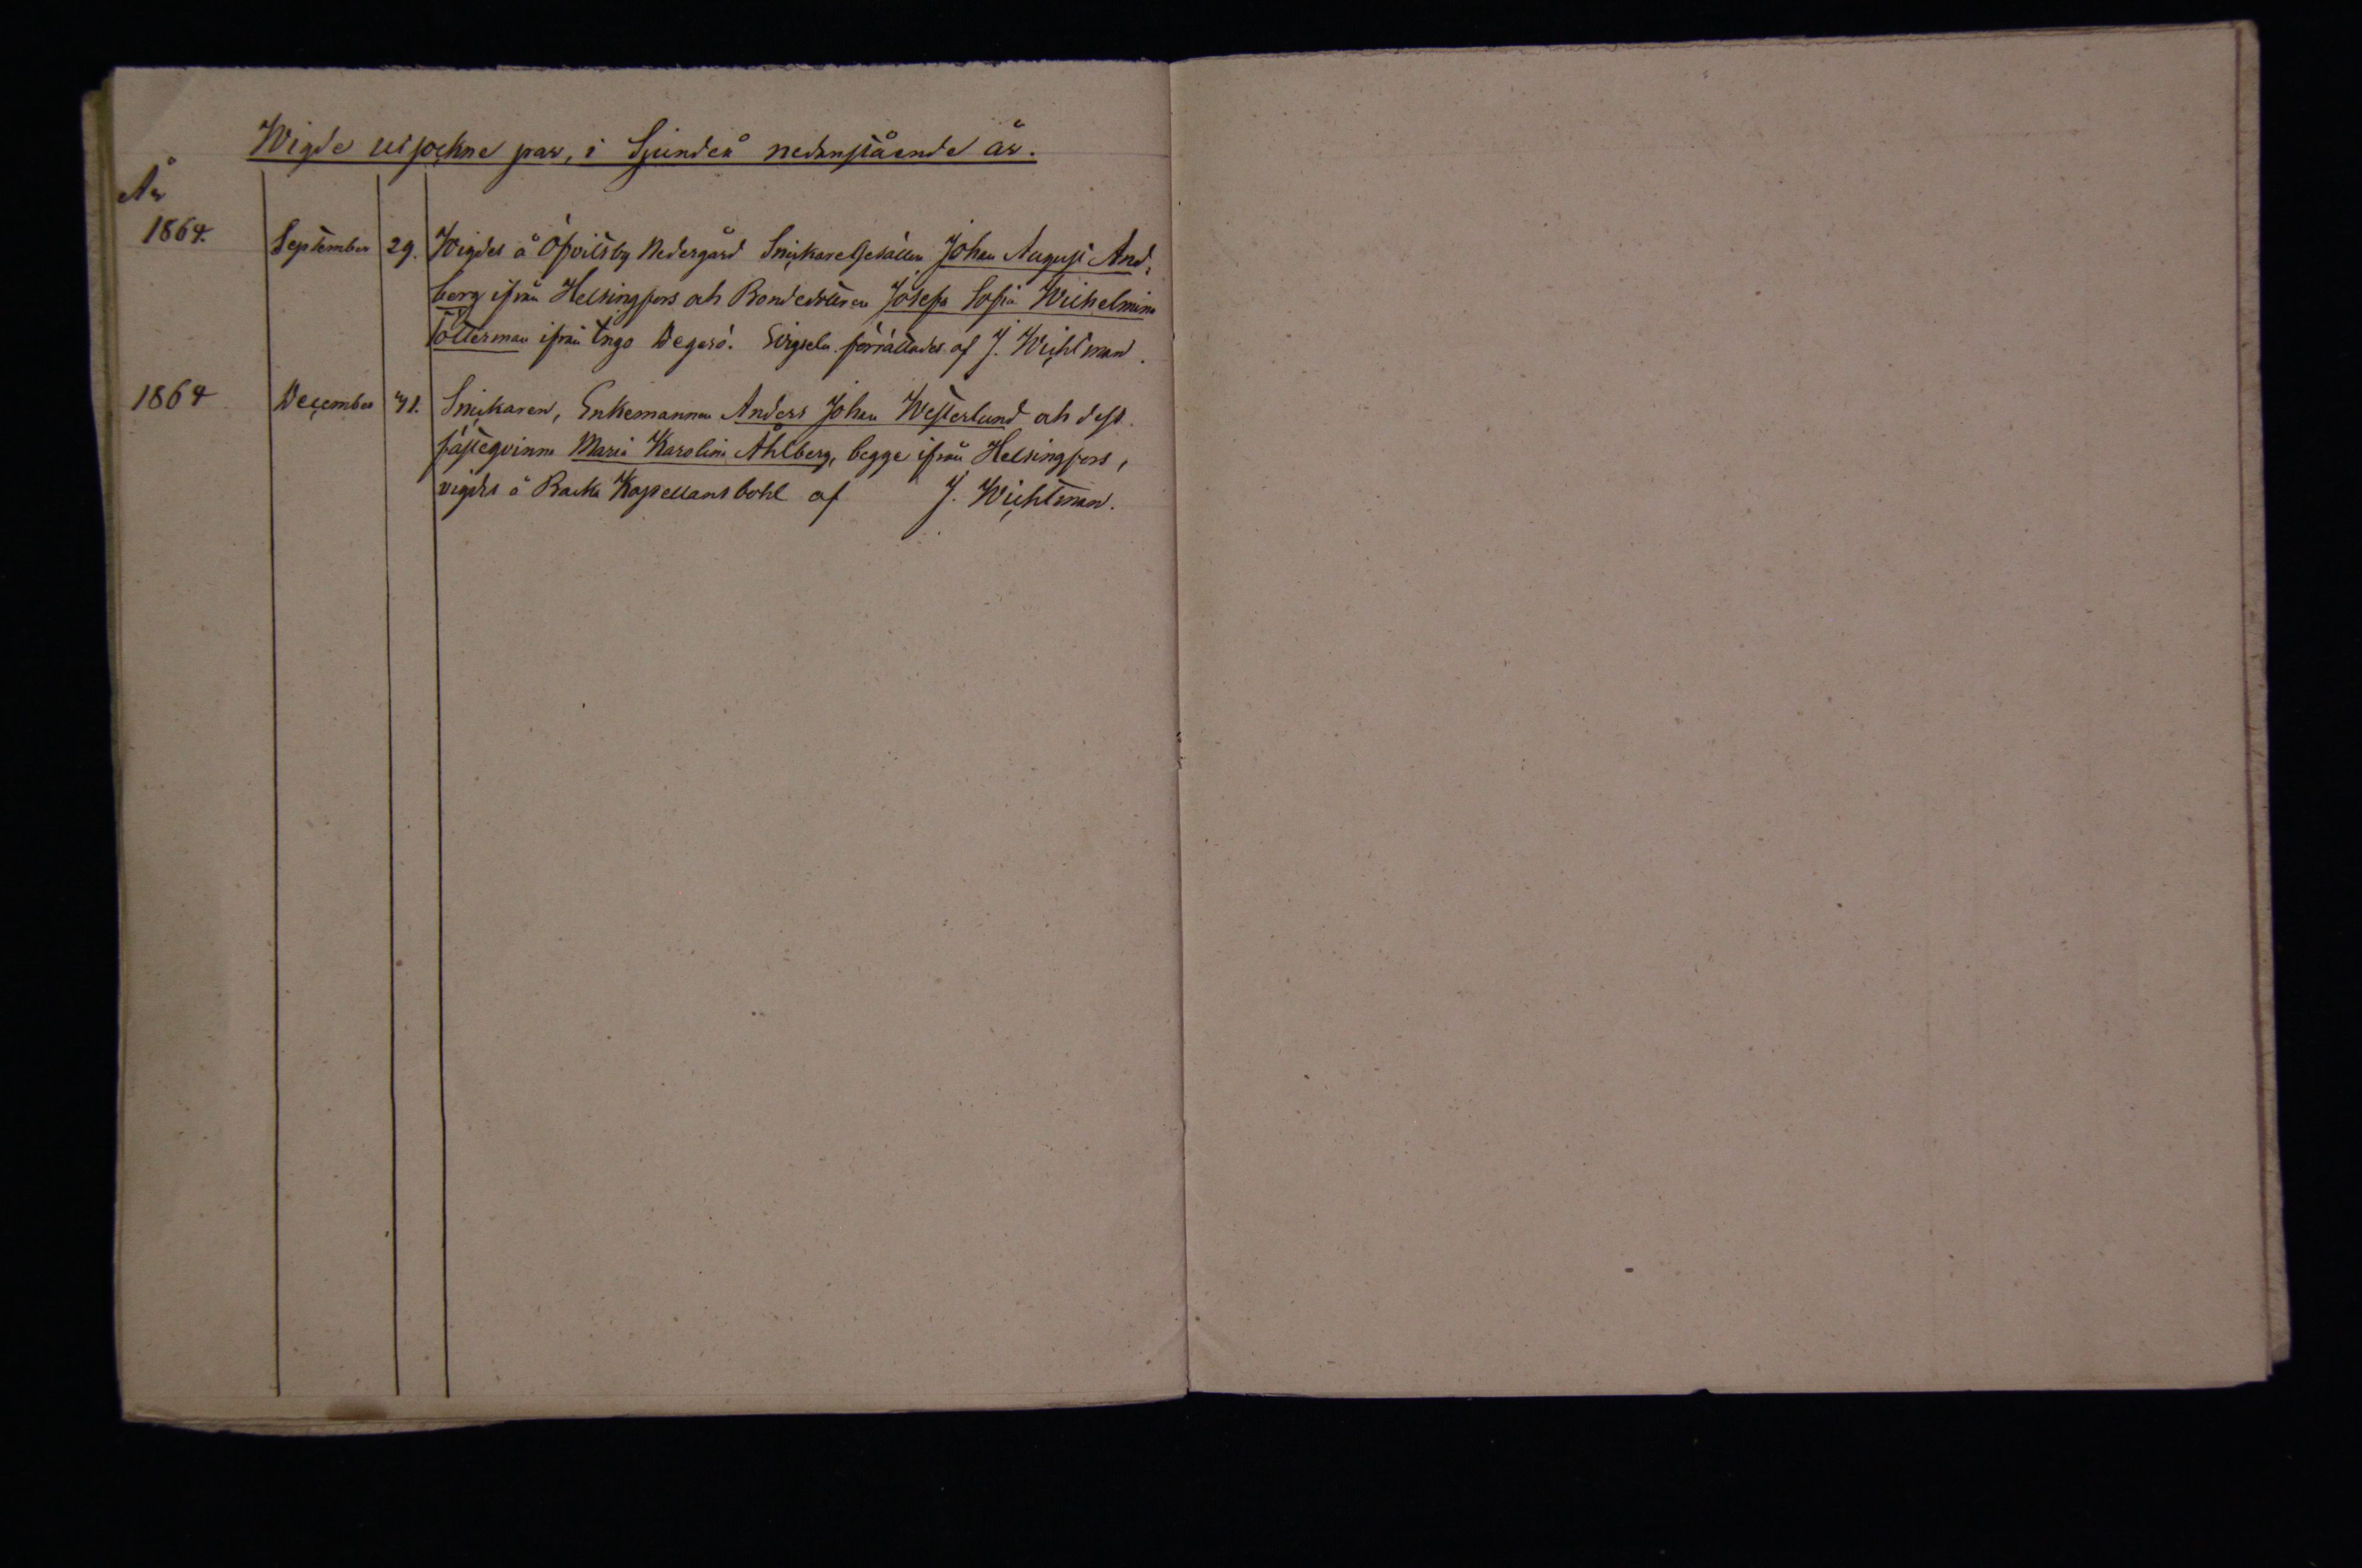 Wigde utsockne par, i Sjundeå nedanstående år.
År
1864. September 29. Wigdes å Öfvitsby Nedergård SnickareGesällen Johan August And,
berg ifrån Helsingfors och Bondedottren Josefa Sofia Wilhelmina
Tötterman ifrån Ingo Degerö. Vigseln förrättades af J. Wichtman.
1864 December 31. Snickaren, Enkemannen Anders Johan Westerlund och dess
fästeqvinna Maria Karolina Åhlberg, begge ifrån Helsingfors,
vigdes å Backa Kapellansbohl af J. Wichtman.